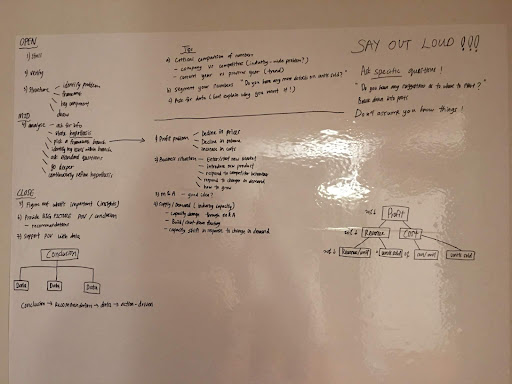 OPEN
1) Stall
2) Verify
3) Structure - identify problem
- framework
- key component
- draw
MID
4) analyse - ask for info
- state hypothesis
- pick a framework branch
- identify key issues within branch
- ask standard questions
- go deeper
- continuously refine hypothesis
CLOSE
1) Figure out what's important (insights)
2) Provide BIG PICTURE POV / conclusion
- recommendations
3) Support POV with data
Conclusion
Data
Data
Data
Conclusion → Recommendations → data → action-driven
Tips
a) Critical comparison of numbers
- company vs competitors (industry-wide problem?)
- current year vs previous year (trend)
b) Segment your numbers "Do you have any more details on units sold?"
c) Ask for data (but explain why you need it!)
1) Profit problem - Decline in prices
- Decline in volume
- increase in costs
2) Business situation - Enter/exit new market
- introduce new product
- respond to competitor
- respond to changes in demand
- how to grow
3) M & A - good idea?
4) Supply / Demand (industry capacity)
- Capacity change through M & A
- Build / shut down facility
- capacity shifts in response to change in demand
SAY OUT LOUD !!!
Ask specific questions!
"Do you have any suggestions as to where to start?"
Break down into parts
Don't assume you know things!
Profit
Revenue
Cost
Revenue/unit
units sold
cost/unit
units sold